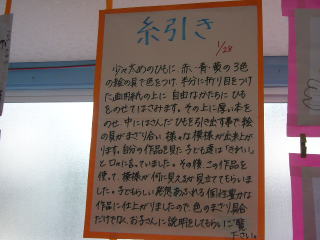 糸引き
1/28
少々太めのひもに、赤・青・黄の3色
の絵の具で色をつけ、半分に折り目をつけ
た画用紙の上に自由なかたちにひも
をのせてはさみます。その上に厚い本を
のせ、中にはさんだひもを引き出す事で絵
の具がまざり合い様々な模様が出来上が
ります。自分の作品を見た子ども達は「きれい」
と口々に言っていました。その後この作品を
使って、模様が何に見えるか見立ててもらいまし
た。子どもらしい発想あふれる個性豊かな
作品に仕上がりましたので、色のまざり具合
だけでなく、お子さんに説明をしてもらいご覧
下さい。